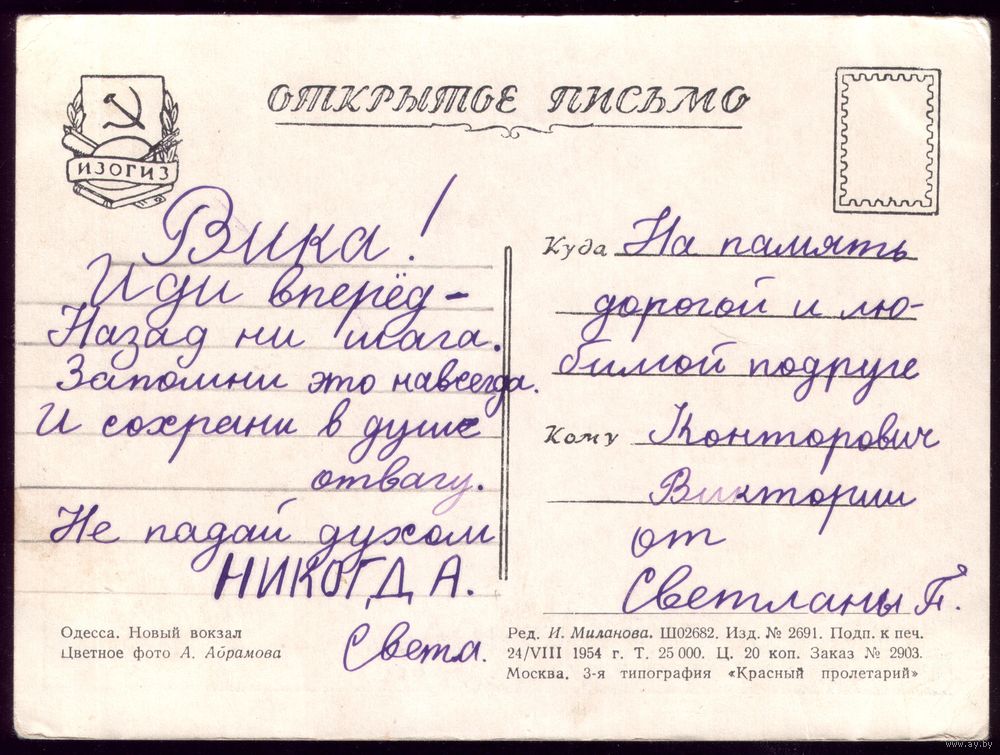 ОТКРЫТОЕ ПИСЬМО
ИЗОГИЗ
Вика!
Иди вперёд -
Назад ни шага.
Запомни это навсегда.
И сохрани в душе
отвагу.
Не падай духом
НИКОГДА.
Света.
Куда На память
дорогой и лю-
бимой подруге
Кому Конторович
Виктории
от
Светланы П.
Одесса. Новый вокзал
Цветное фото А. Абрамова
Ред. И. Миланова. Ш02682. Изд. № 2691. Подп. к печ.
24/VIII 1954 г. Т. 25 000. Ц. 20 коп. Заказ № 2903.
Москва. 3-я типография «Красный пролетарий»
www.ay.by